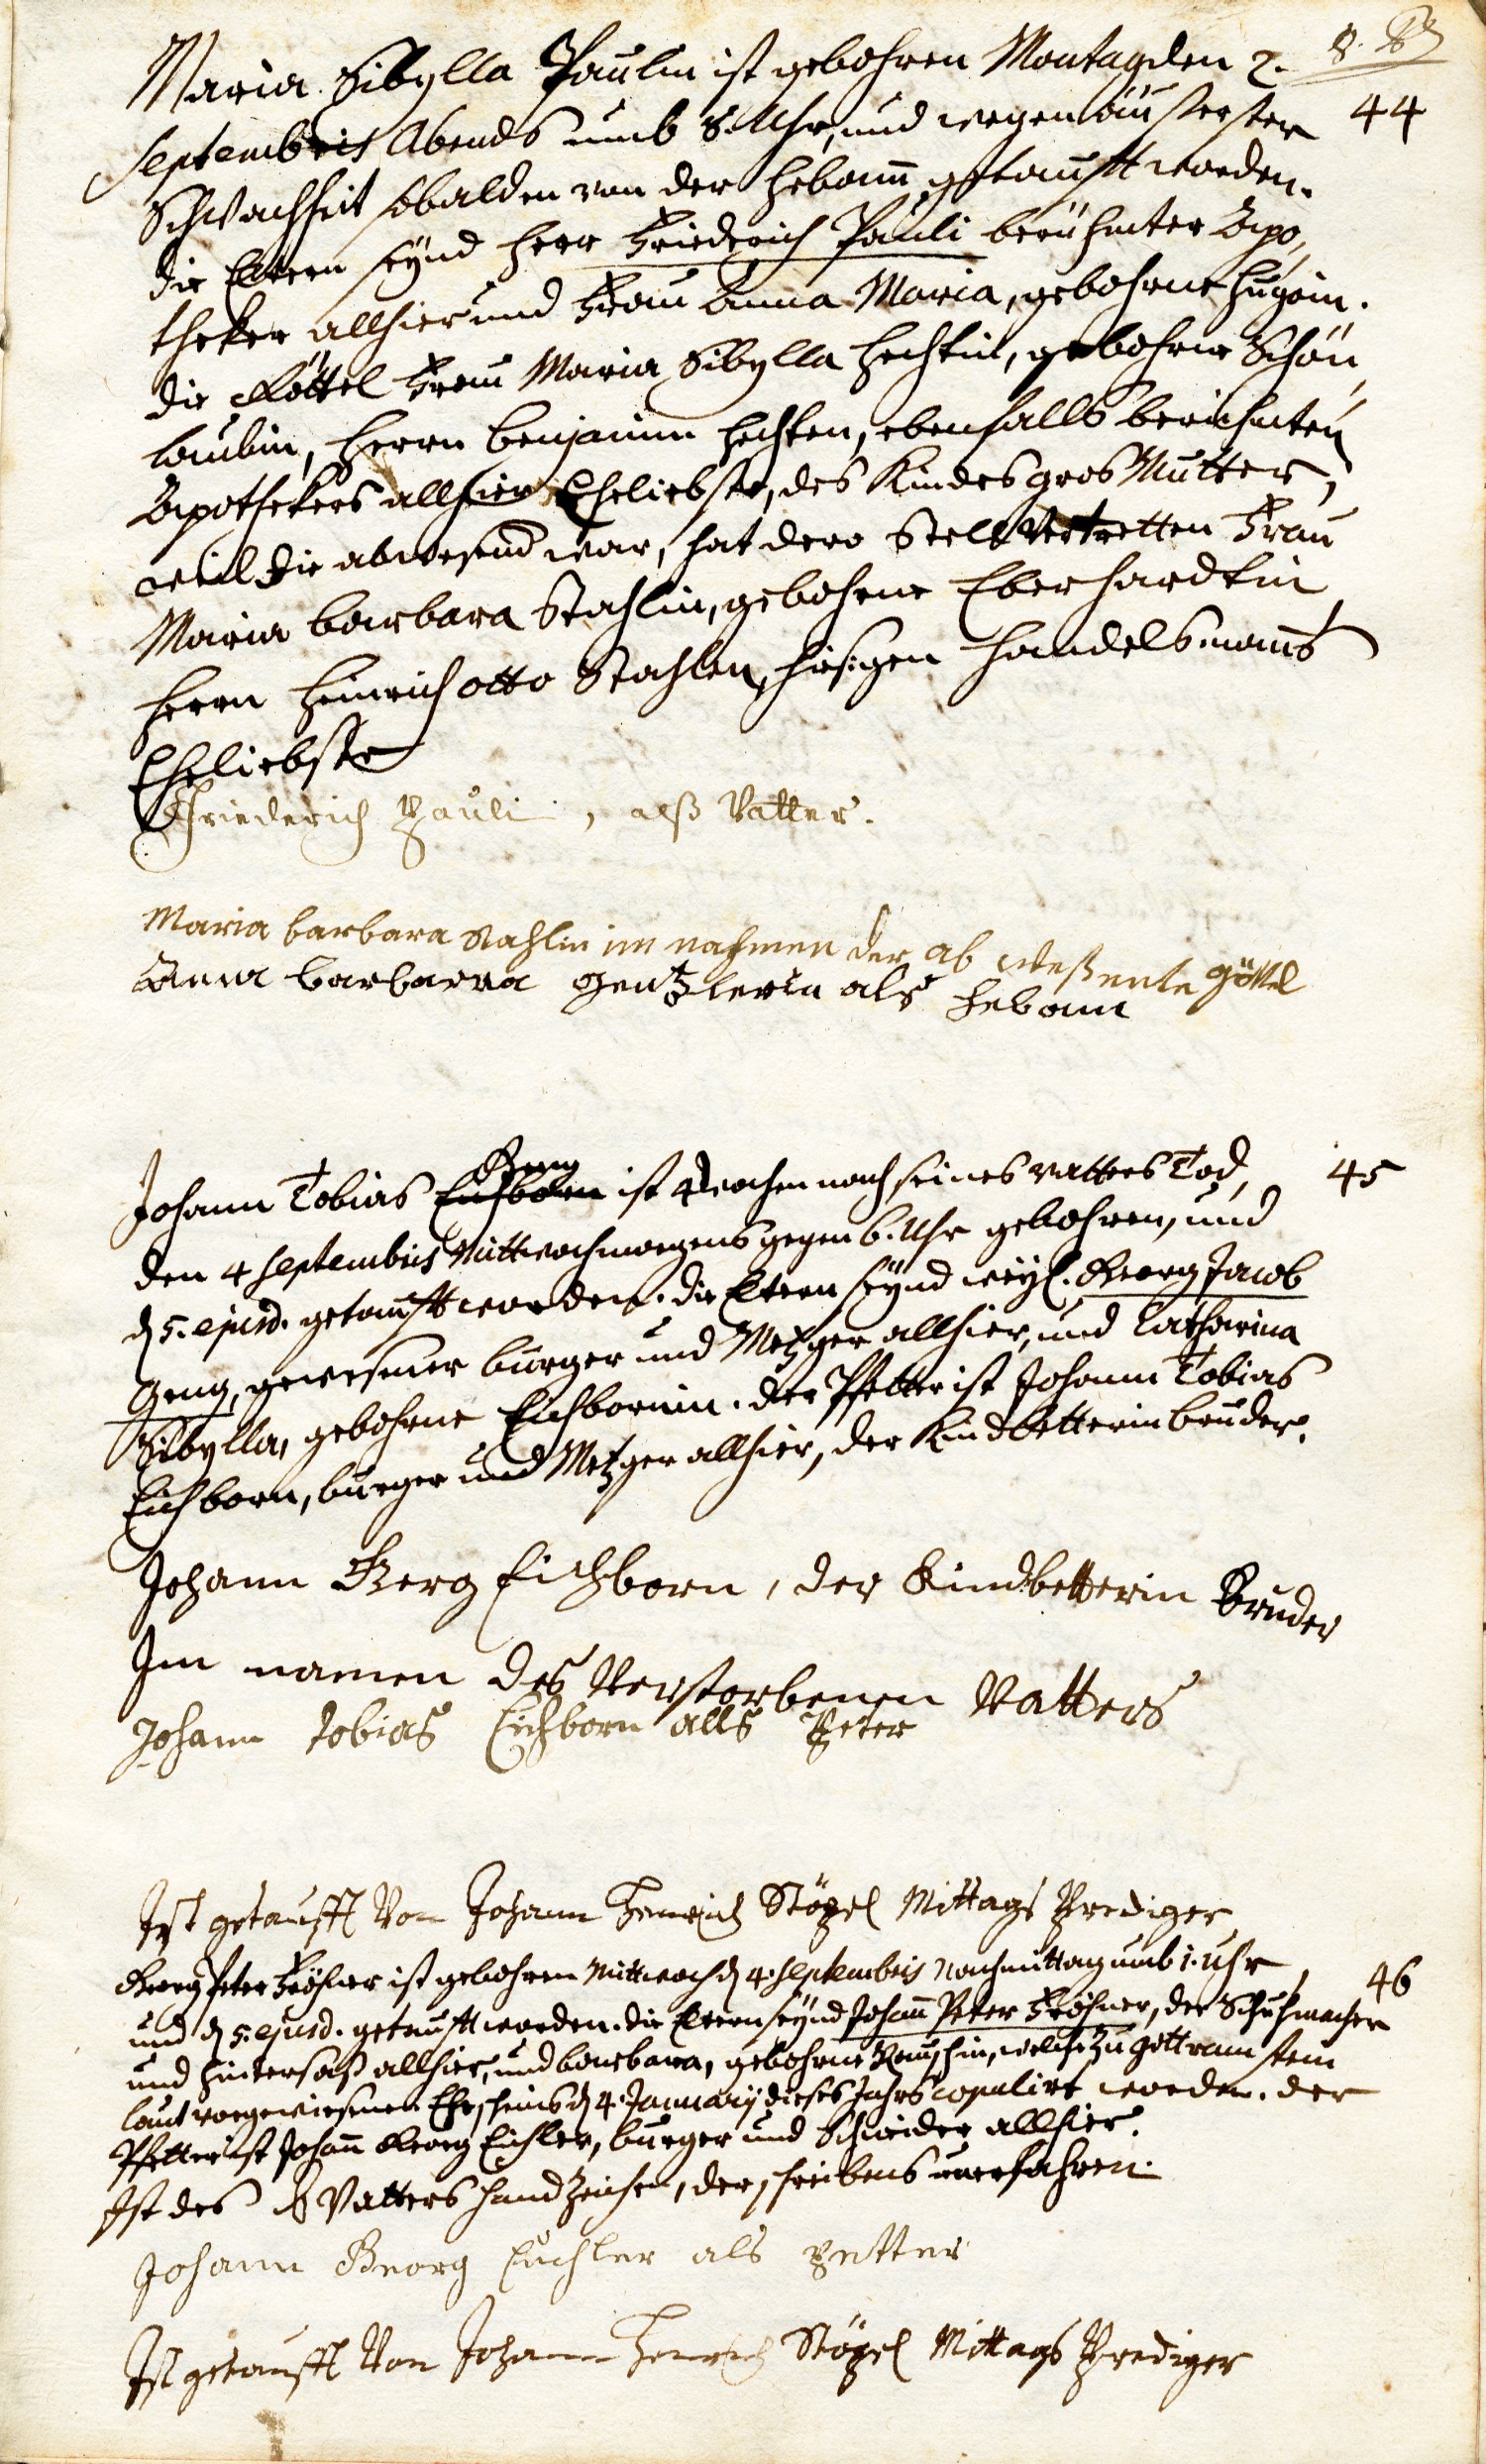 Maria Sibylla Paulin ist gebohren Montag den 2.
44
Septembris Abends umb 8. Uhr, und wegen äusserster
Schwachheit sobalden von der Hebam̄ getaufft worden.
die Eltern seÿnd Herr Friederich Pauli berühmter Apo-
theker allhier und Frau Anna Maria, gebohrne
die Göttel Frau Maria Sibylla Hechtin, gebohrne Schön-
laubin, Herrn Benjamin Hechten, ebenfalls berühmten
Apothekers allhier Eheliebste, des Kindes gros Mutter,
weil die abwesend war, hat dero Stell Vertretten Frau
Maria Barbara Stahlin, gebohrne Eberhardtin
Herrn Heinrich Otto Stahlen, hiesigen Handelsmanns
Eheliebste
Friederich Pauli, alß Vatter.
Maria barbara Stahlin im nahmen der ab weßente göttel
Anna barbarra Gentzlerin als Hebam
Johann Tobias Geng ist 4 wochen nach seines vatters Tod,
45
den 4 Septembris Mittwoch morgens gegen 6. Uhr gebohren, und
d. 5. ejusd. getaufft worden. die Eltern seÿnd weÿl. Georg Jacob
Geng, gewesener burger und Metzger allhier, und Catharina
Sibylla, gebohrne Eichbornin. der Pfetter ist Johann Tobias
Eichborn, burger und Metzger allhier, der Kindbetterin bruder.
Johann Gerg Eichborn, der Kindbetterin Bruder
Im namen des Verstorbenen Vatters
Johann Tobias Eichborn alls Peter
Ist getaufft Von Johann Henrich Stögel Mittags Prediger
Georg Peter Fröhner ist gebohren Mittwoch d. 4. Septembris Nachmittag umb 1. Uhr,
46
und d. 5. ejusd. getaufft worden. die Eltern seÿnd Johan̄ Peter Fröhner, der Schuhmacher
und Hintersaß allhier, und barbara, gebohrne welche zu Gottramstein
laut vorgewiesenen Ehescheins d. 4. Januarij dieses Jahrs copulirt worden. der
Pfetter ist Johan̄ Georg Eichler, burger und Schneider allhier.
Ist des Vatters Handzeichen, der schreibens unerfahren.
Johann Georg Euchler als petter
Ist getaufft Von Johann Henrich Stögel Mittags Prediger